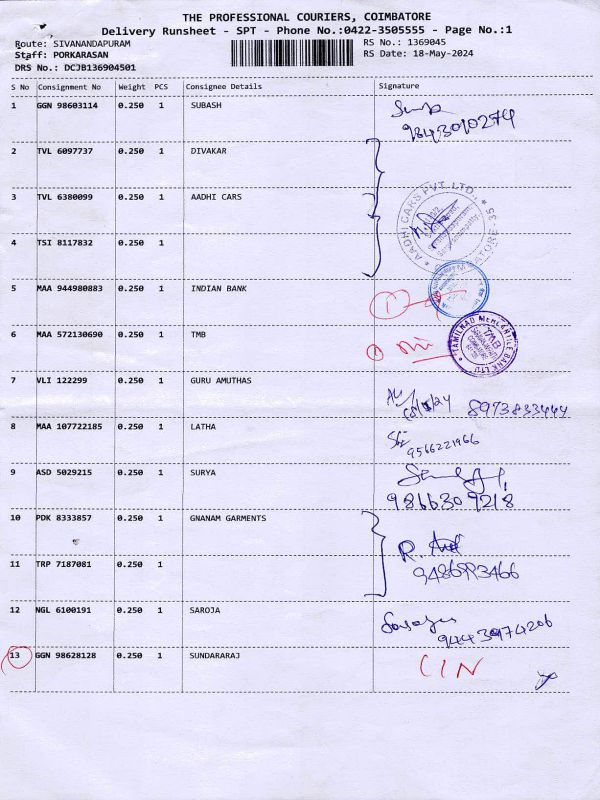 THE PROFESSIONAL COURIERS, COIMBATORE
Delivery Runsheet - SPT - Phone No.:0422-3505555 - Page No.:1
Route: SIVANANDAPURAM RS No.: 1369045
Staff: PORKARASAN RS Date: 18-May-2024
DRS No.: DCJB136904501
S No Consignment No Weight PCS Consignee Details Signature
1 GGN 98603114 0.250 1 SUBASH
9843010274
2 TVL 6097737 0.250 1 DIVAKAR
3 TVL 6380099 0.250 1 AADHI CARS
AADHI CARS PVT. LTD.,
4 TSI 8117832 0.250 1
5 MAA 944980883 0.250 1 INDIAN BANK
1
6 MAA 572130690 0.250 1 TMB
1
TAMILNAD MERCANTILE BANK LTD
TMB
7 VLI 122299 0.250 1 GURU AMUTHAS
18/5/24 8973833444
8 MAA 107722185 0.250 1 LATHA
9566221966
9 ASD 5029215 0.250 1 SURYA
9866309218
10 PDK 8333857 0.250 1 GNANAM GARMENTS
11 TRP 7187081 0.250 1
9486993466
12 NGL 6100191 0.250 1 SAROJA
9443974206
13 GGN 98628128 0.250 1 SUNDARARAJ
CIN